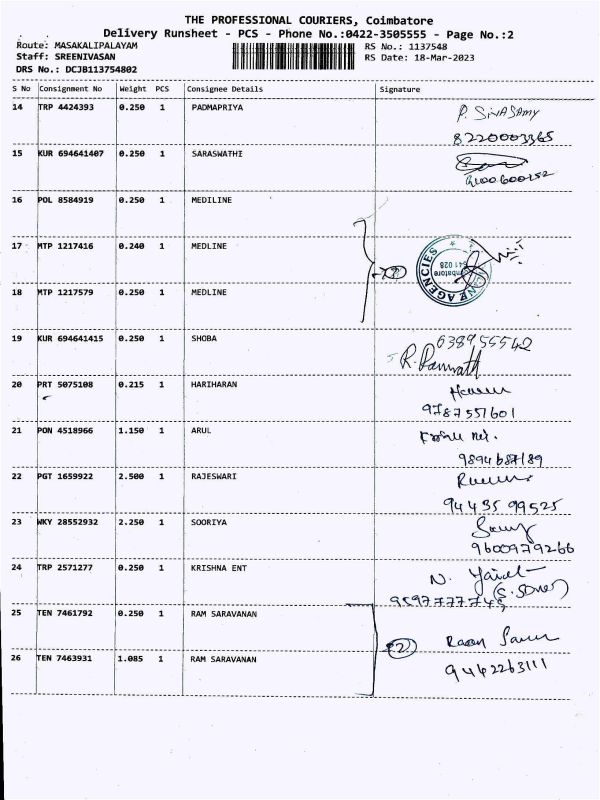 THE PROFESSIONAL COURIERS, Coimbatore
Delivery Runsheet - PCS - Phone No.:0422-3505555 - Page No.:2
Route: MASAKALIPALAYAM
RS No.: 1137548
Staff: SREENIVASAN
RS Date: 18-Mar-2023
DRS No.: DCJB113754802
S No Consignment No Weight PCS Consignee Details Signature
14 TRP 4424393 0.250 1 PADMAPRIYA P. SIVASAMY
8220003365
15 KUR 694641407 0.250 1 SARASWATHI
16 POL 8584919 0.250 1 MEDILINE
17 MTP 1217416 0.240 1 MEDLINE
AGENCIES
641 028
18 MTP 1217579 0.250 1 MEDLINE
19 KUR 694641415 0.250 1 SHOBA 638955542
20 PRT 5075108 0.215 1 HARIHARAN
9787551601
21 PON 4518966 1.150 1 ARUL
9894687189
22 PGT 1659922 2.500 1 RAJESWARI
94435 99525
23 WKY 28552932 2.250 1 SOORIYA
9600979266
24 TRP 2571277 0.250 1 KRISHNA ENT
9597777745
25 TEN 7461792 0.250 1 RAM SARAVANAN
2
26 TEN 7463931 1.085 1 RAM SARAVANAN
9442263111